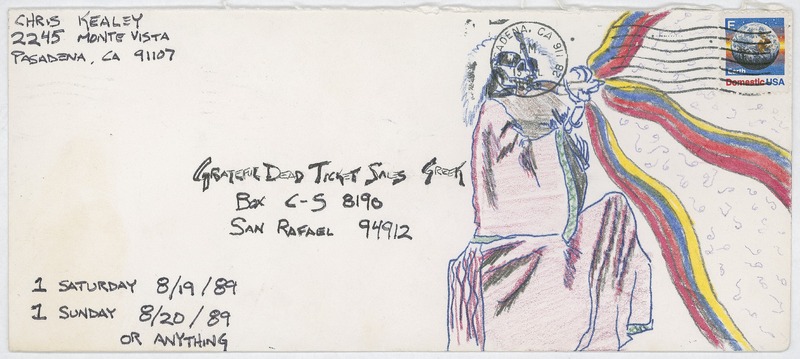 CHRIS KEALEY
2245 MONTE VISTA
PASADENA, CA 91107
GRATEFUL DEAD TICKET SALES GREEK
BOX C-S 8190
SAN RAFAEL 94912
1 SATURDAY 8/19/89
1 SUNDAY 8/20/89
OR ANYTHING
PASADENA, CA 911
E
Earth
Domestic USA